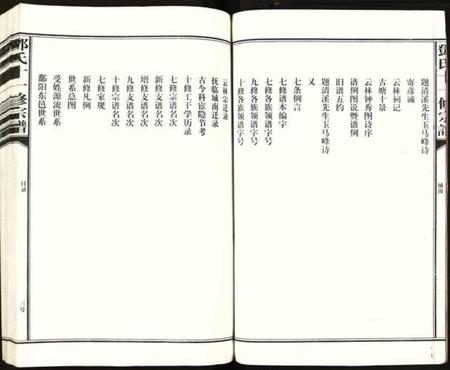 题清溪先生玉马峰诗
寄彦诚
云林祠记
古塘十景
云林钟秀图诗序
谱例图说暨谱例
旧谱五约
题清溪先生玉马峰诗
又
七条例言
七修谱本编字
七修各族领谱字号
九修各族领谱字号
十修各族领谱字号
云林宗迁录
抚临城南迁录
古今科宦隐节考
十修工干学历录
七修宗谱名次
新修支谱名次
增修支谱名次
九修支谱名次
十修宗谱名次
七修家规
新修凡例
世系总图
受姓源流世系
鄱阳东邑世系
邓氏十一修宗谱
目录
三号
城南